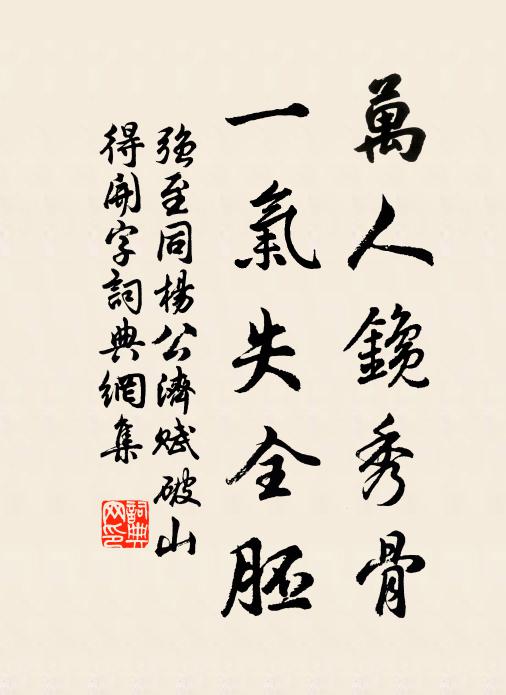 萬人鑱秀骨
一氣失全胚
強至同楊公濟賦破山
得開字詞典網集
詞典
网印